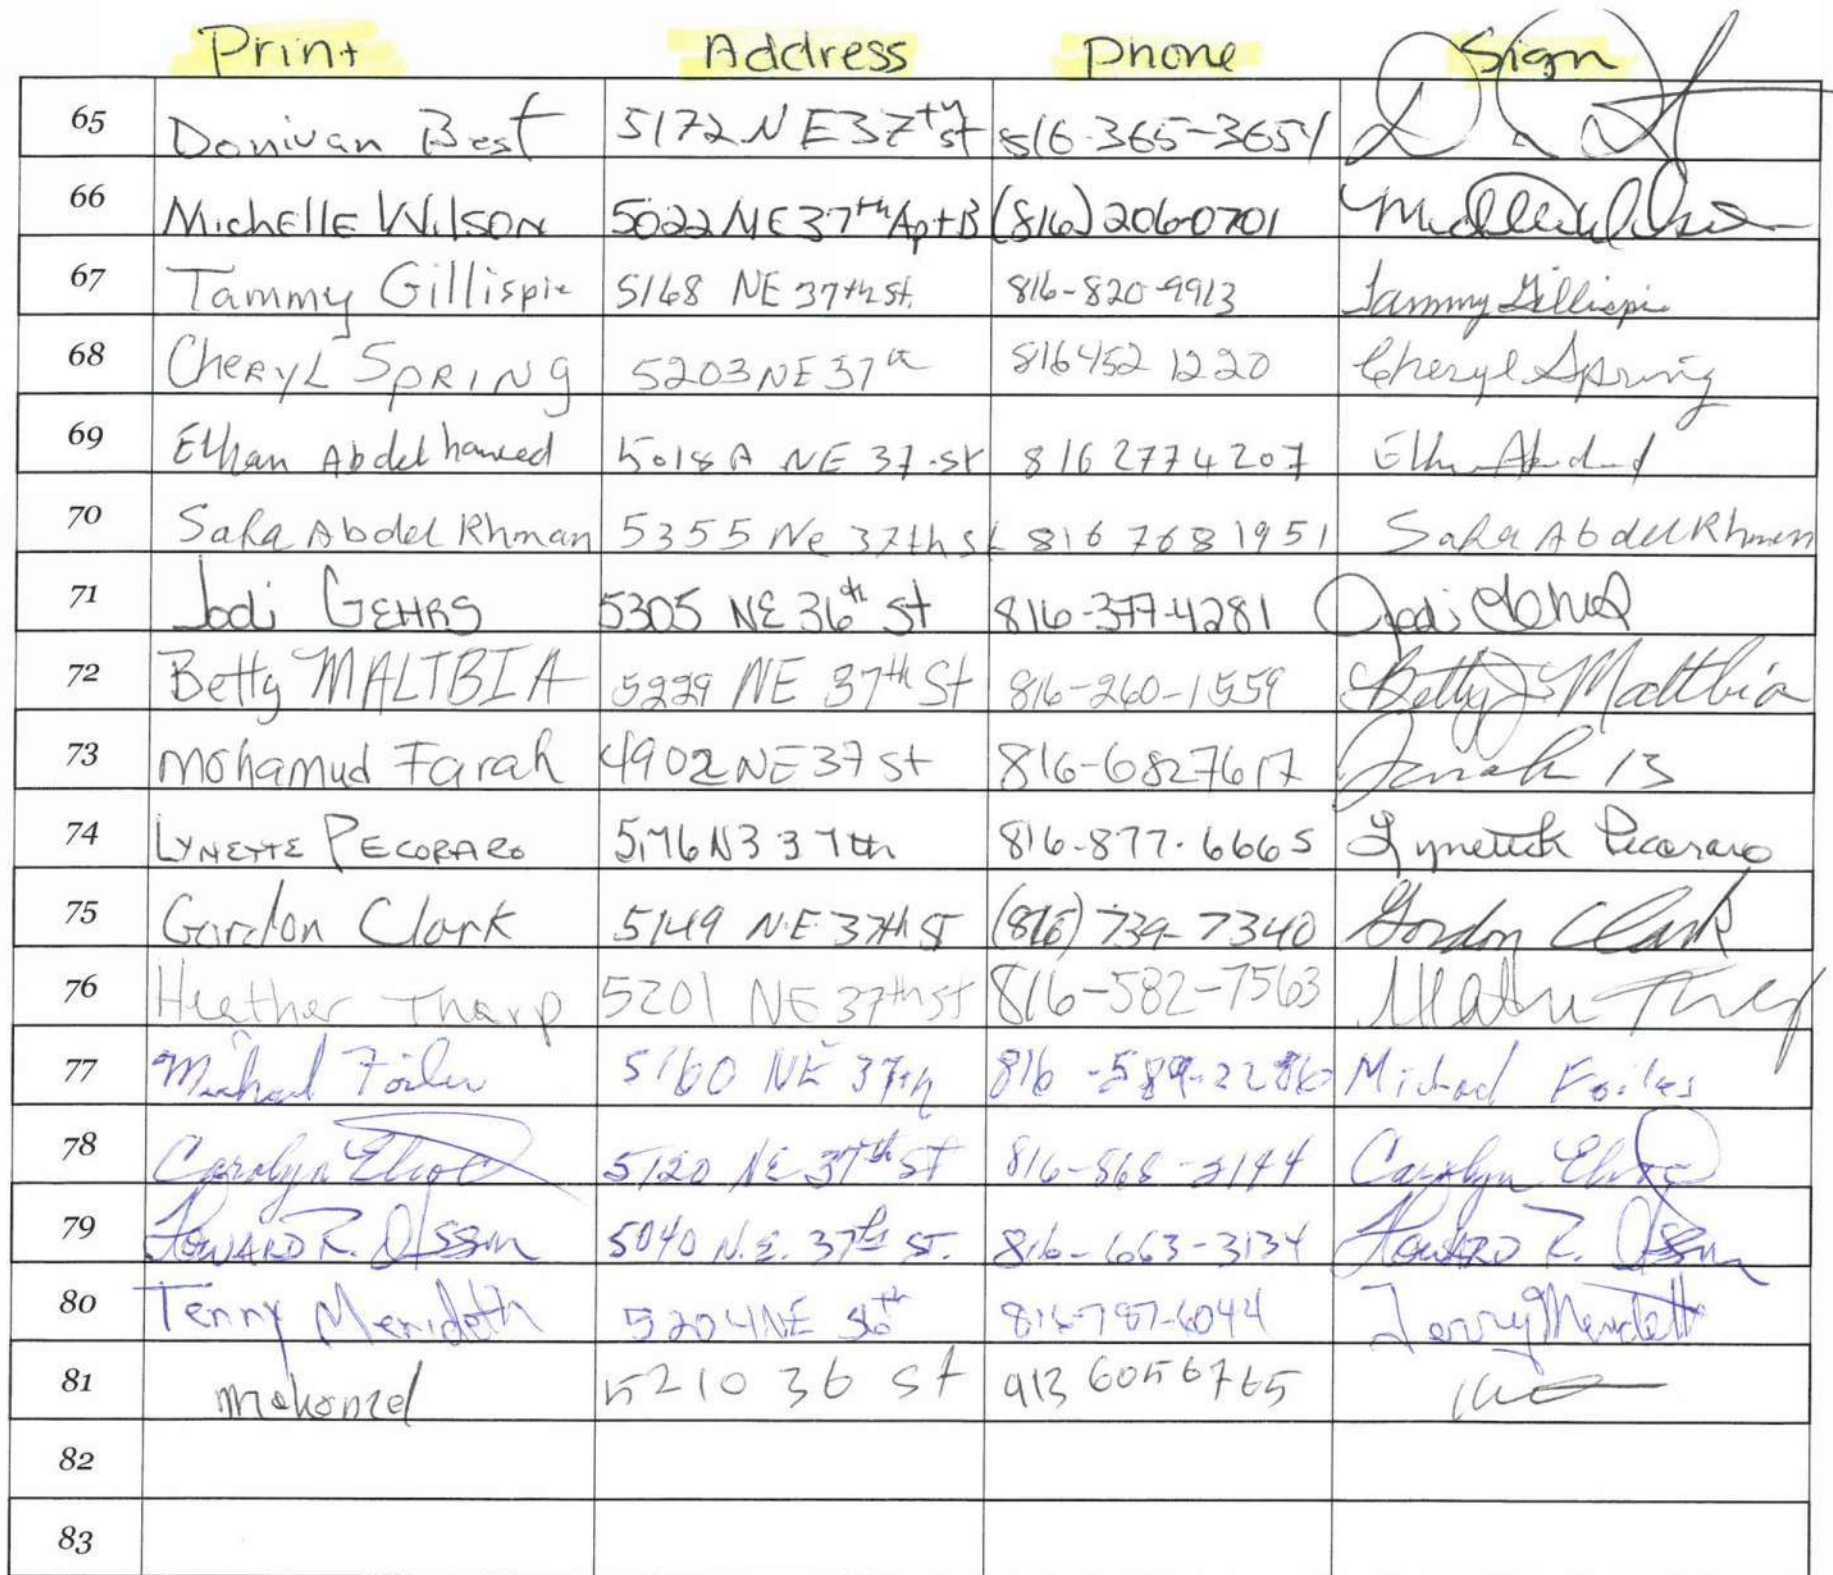 Print Address Phone Sign
65 Donivan Best 5172 NE 37th st 816-365-3651
66 Michelle Wilson 5022 NE 37th Apt B (816) 206-0701 Michelle Wilson
67 Tammy Gillispie 5168 NE 37th st. 816-820-9913 Tammy Gillispie
68 Cheryl Spring 5203 NE 37th 816 452 1220 Cheryl Spring
69 Elhan Abdelhameed 5018 A NE 37 st 816 277 4207
70 Safa Abdel Rhman 5355 Ne 37th st 816 768 1951 Safa Abdel Rhman
71 Jodi GEHRS 5305 NE 36th St 816-377-4281 Jodi Gehrs
72 Betty MALTBIA 5229 NE 37th St 816-260-1559 Betty J Maltbia
73 Mohamud Farah 4902 NE 37 st 816-6827617 Farah 13
74 LYNETTE PECORARO 5176 N3 37th 816-877-6665 Lynette Pecoraro
75 Gordon Clark 5149 N.E. 37th ST (816) 739-7340 Gordon Clark
76 Heather Tharp 5201 NE 37th st 816-582-7563
77 Michael Foiles 5160 NE 37th 816-589-2286 Michael Foiles
78 Carolyn 5120 NE 37th ST 816-868-2144 Carolyn
79 HOWARD R. Olsson 5040 N.E. 37th ST. 816-663-3134 Howard R. Olsson
80 Terry Merideth 5204 NE 36th 816-787-6044 Terry Merideth
81 5210 36 St 913 6056765
82
83